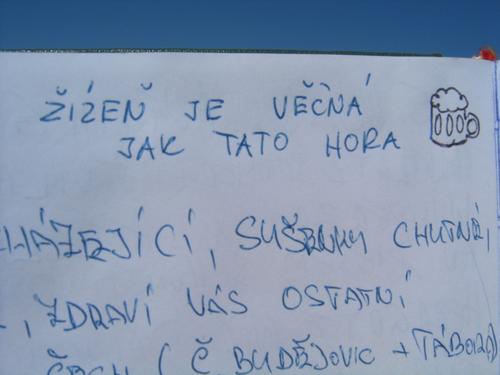 ŽÍZEŇ JE VĚČNÁ
JAK TATO HORA
SUŠENKY CHUTNÉ,
, ZDRAVÍ VÁS OSTATNÍ
(Č. BUDĚJOVIC + TÁBORA)